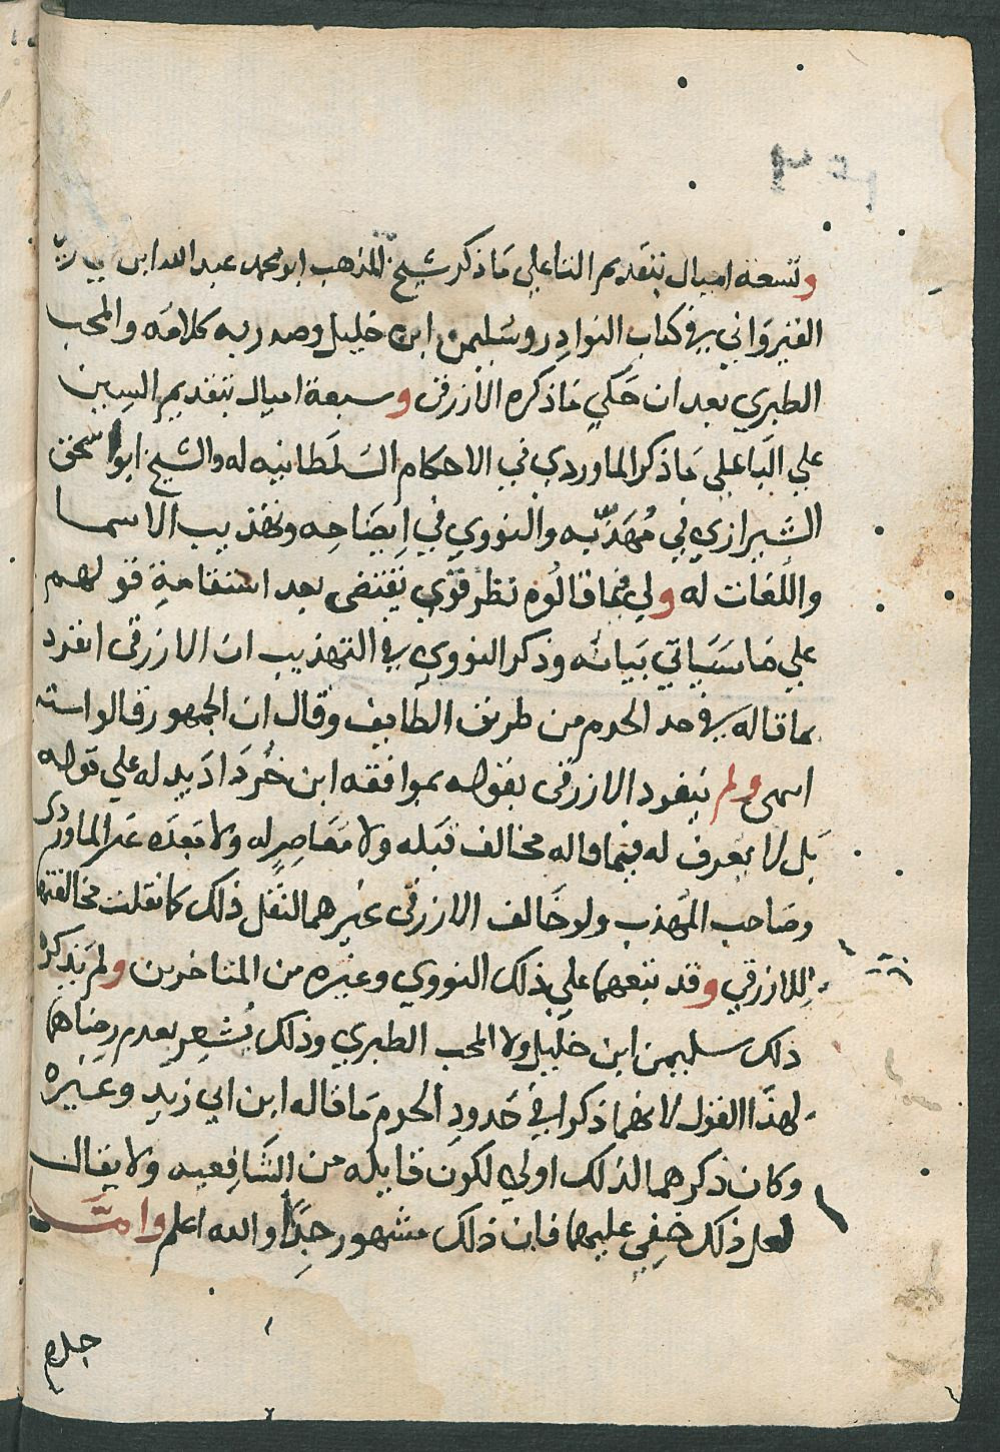 وتسعه اميال بتقديم التا على ما ذكر شيخ المذهب ابو محمد عبد الله ابن ابي زيد
القيرواني في كتاب النوادر وسليمن ابن خليل وصدر به كلامه والمحب
الطبري بعد ان حكي ما ذكره الازرقي وسبعة اميال بتقديم السين
علي البا علي ما ذكر الماوردي في الاحكام السلطانيه له والشيخ ابو اسحق
الشيرازي في مهذبه والنووي في ايضاحه وتهذيب الاسما
واللغات له ولي فيما قالوه نظر قوي يقتضي بعد استقامة قولهم
علي ما سياتي بيانه وذكر النووي في التهذيب ان الازرقي انفرد
بما قاله في حد الحرم من طريق الطايف وقال ان الجمهور قالوا سته
انتهى ولم ينفرد الازرقي بقوله بموافقه ابن خرداذبه له علي قوله
بل لا يعرف له فيما قاله مخالف قبله ولا معاصر له ولا بعده غير الماوردي
وصاحب المهذب ولو خالف الازرقي غيرهما لنقل ذلك كما نقلت مخالفتهما
للازرقي وقد تبعهما علي ذلك النووي وغيره من المتاخرين ولم يذكر
ذلك سليمن ابن خليل ولا المحب الطبري وذلك يشعر بعدم رضاهما
لهذا القول لانهما ذكرا في حدود الحرم ما قاله ابن ابي زيد وغيره
وكان ذكرهما لذلك اولي لكون قايله من الشافعيه ولا يقال
لعل ذلك خفي عليهما فان ذلك مشهور جدا والله اعلم وامتا